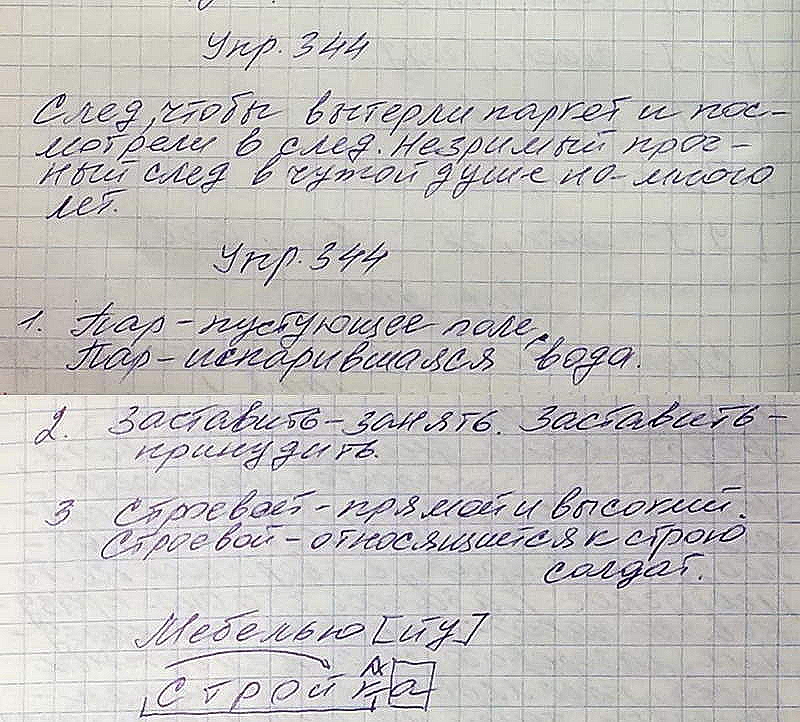 Упр. 344
След, чтобы вытерли паркет и пос-
мотрели в след. Незримый проч-
ный след в чужой душе на много
лет.
Упр. 344
1. Пар - пустующее поле,
Пар - испарившаяся вода.
2. Заставить - занять. Заставить -
принудить.
3 Строевой - прямой и высокий.
Строевой - относящийся к строю
солдат.
Мебелью [йу]
стройка